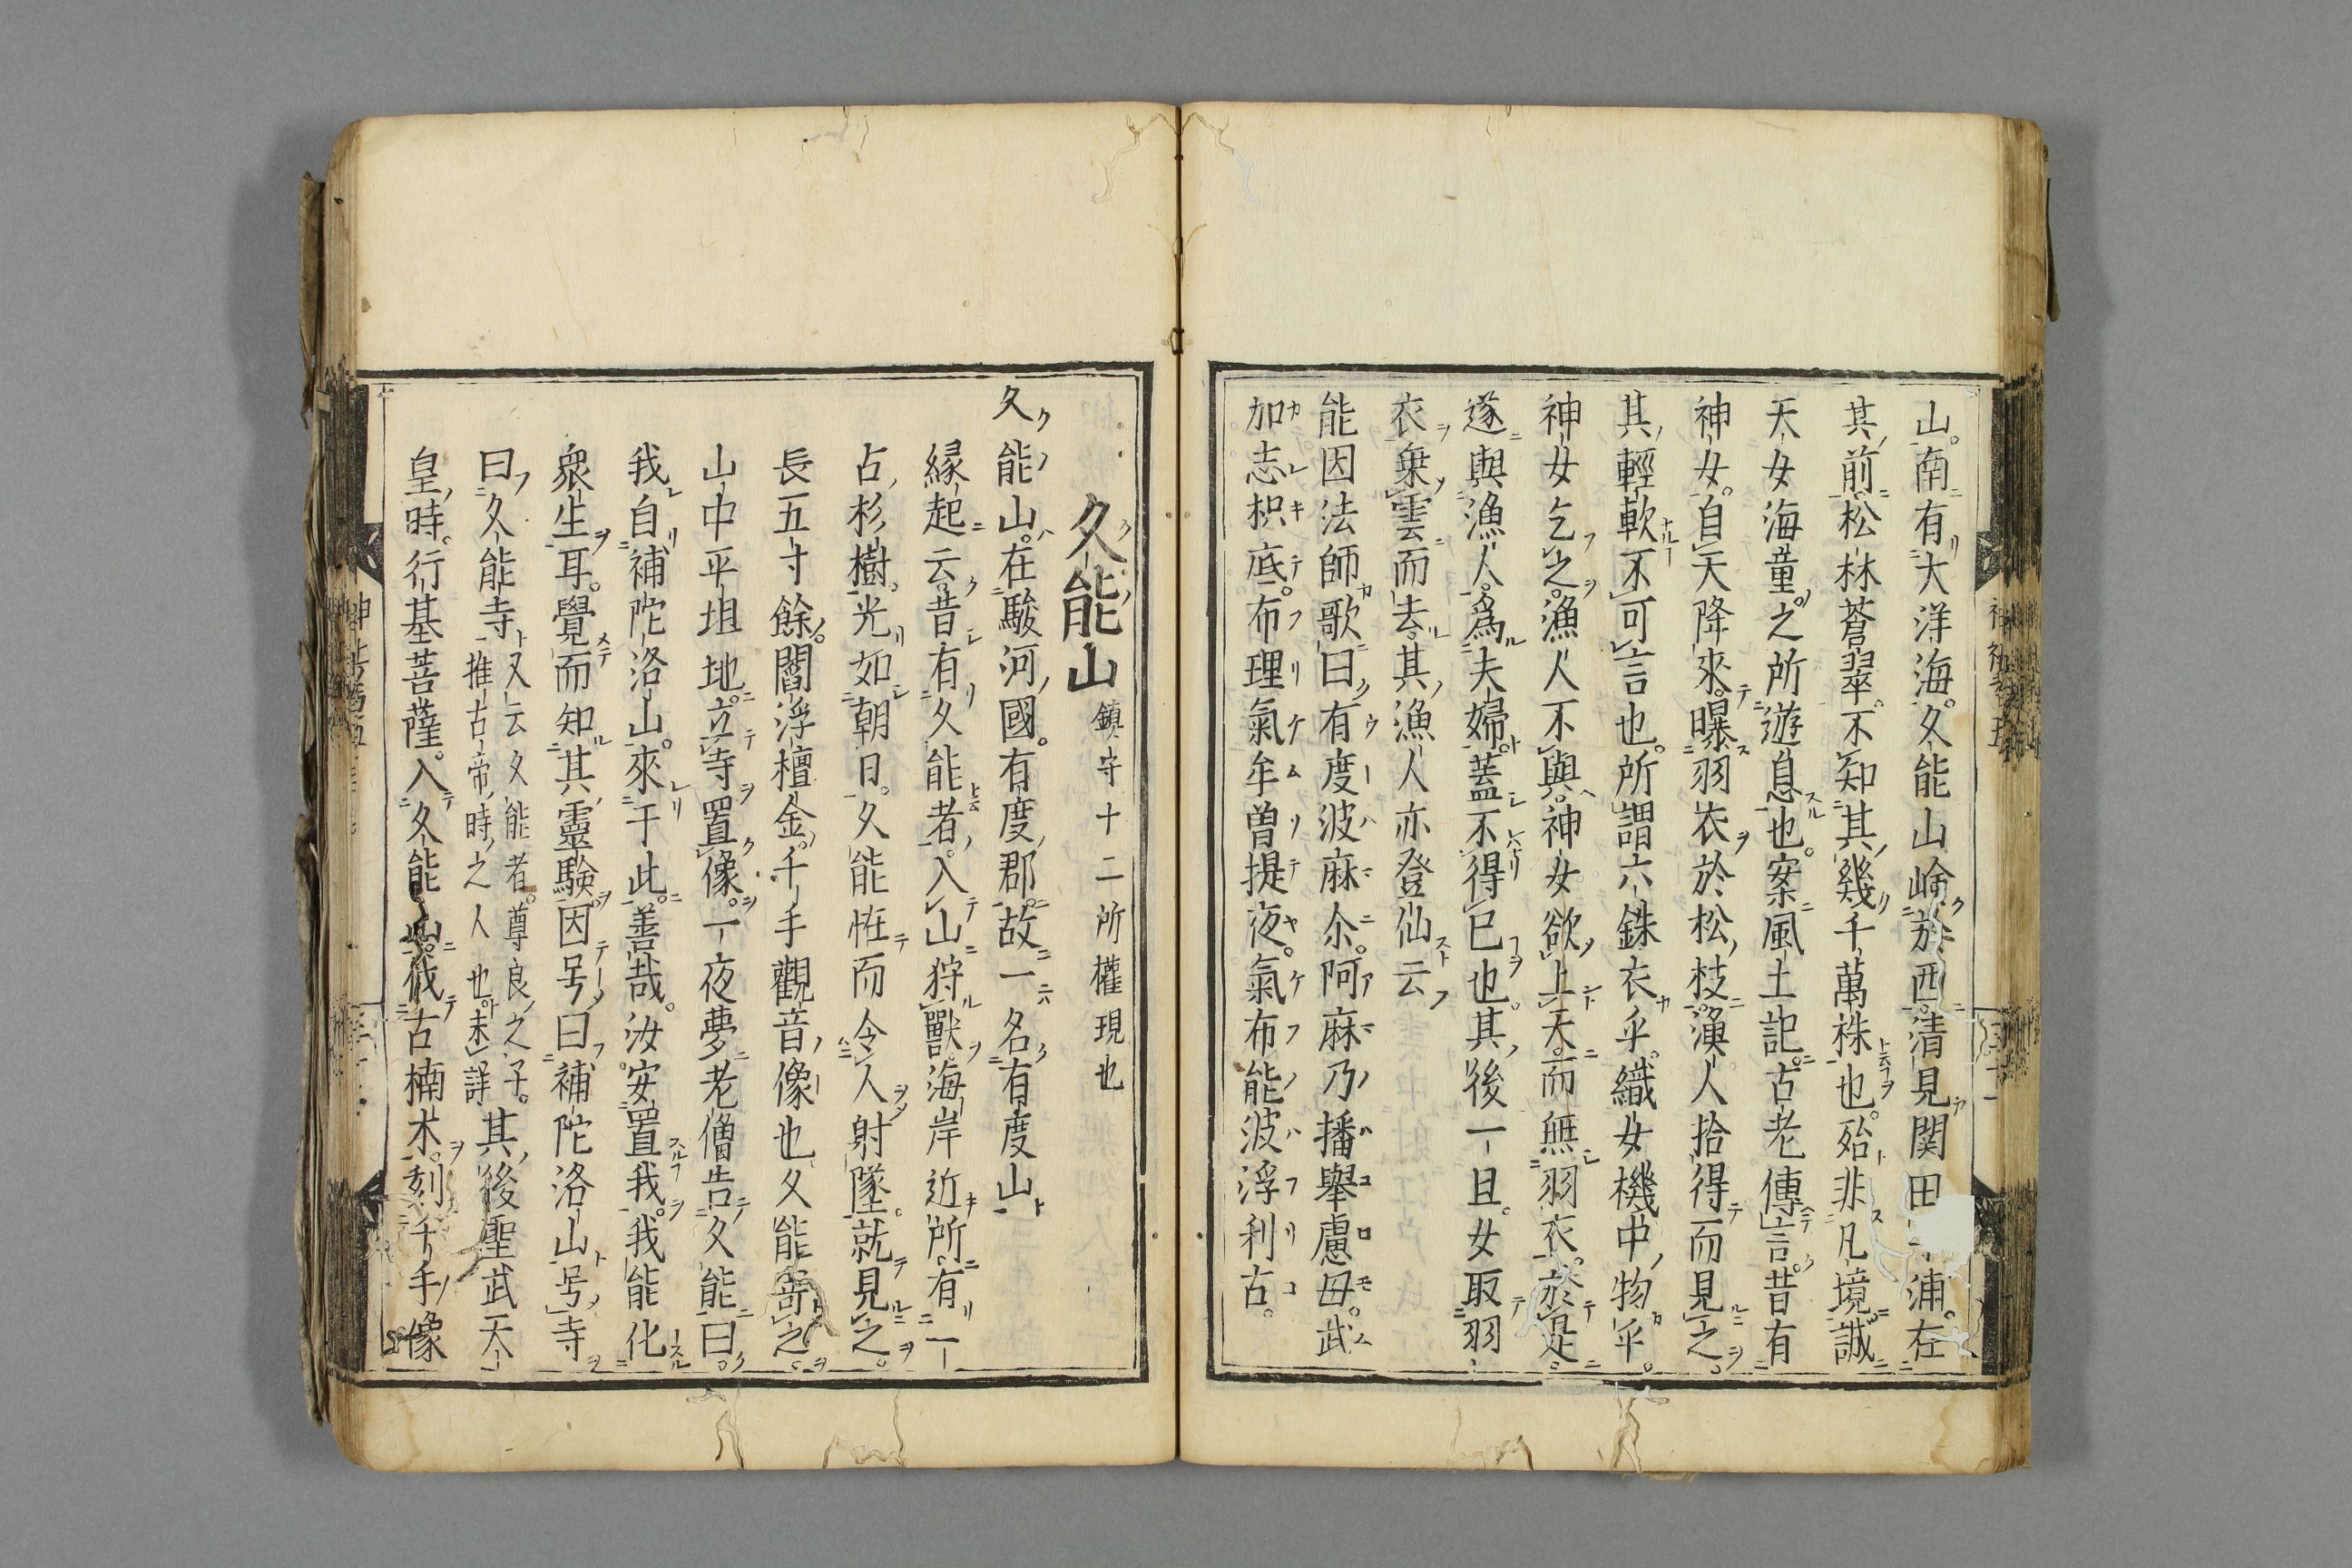 山。南有大洋海。久能山崯於西。清見関田浦。在
其前松林蒼翠。不知其幾千萬株也。殆非凡境誠
天女海童之所遊息也。案風土記。古老傳言。昔有
神女。自天降來。曝羽衣於松枝。漁人拾得而見之。
其輕軟不可言也。所謂六銖衣乎。織女機中物乎。
神女乞之。漁人不與。神女欲上天。而無羽衣。於是。
遂與漁人。爲夫婦。蓋不得已也。其後一旦。女取羽
衣乗雲而去。其漁人亦登仙云
能因法師歌曰。有度波麻尒。阿麻乃播舉慮母。武
加志枳底。布理氣牟曽提夜。氣布能波浮利古。
久能山 鎮守十二所權現也
久能山。在駿河國。有度郡。故一名有度山
縁起云。昔有久能者。入山狩獸。海岸近所。有一
占杉樹。光如朝日。久能恠而令人射墜。就見之。
長五寸餘。閻浮檀金。千手觀音像也久能寄之。
山中平坦地。立寺置像。一夜夢老僧告久能曰。
我自補陀洛山。來于此。善哉。汝安置我。我能化
衆生耳。覺而知其靈験。因号曰補陀洛山号寺
曰久能寺 又云久能者。尊良之子。推古帝時之人也。未詳 其後聖武天
皇時。行基菩薩。入久能山。伐古楠木。刻千手像